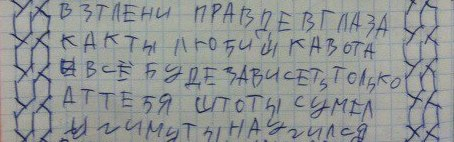 ВЗГЛЕНИ ПРАВДЕ В ГЛАЗА
КАК ТЫ ЛЮБИШ КАВОТА
ВСЁ БУДЕ ЗАВИСЕТЬ ТОЛЬКО
АТ ТЕБЯ ШТО ТЫ СУМЕЛ
ТЫ НАУЧИЛСЯ